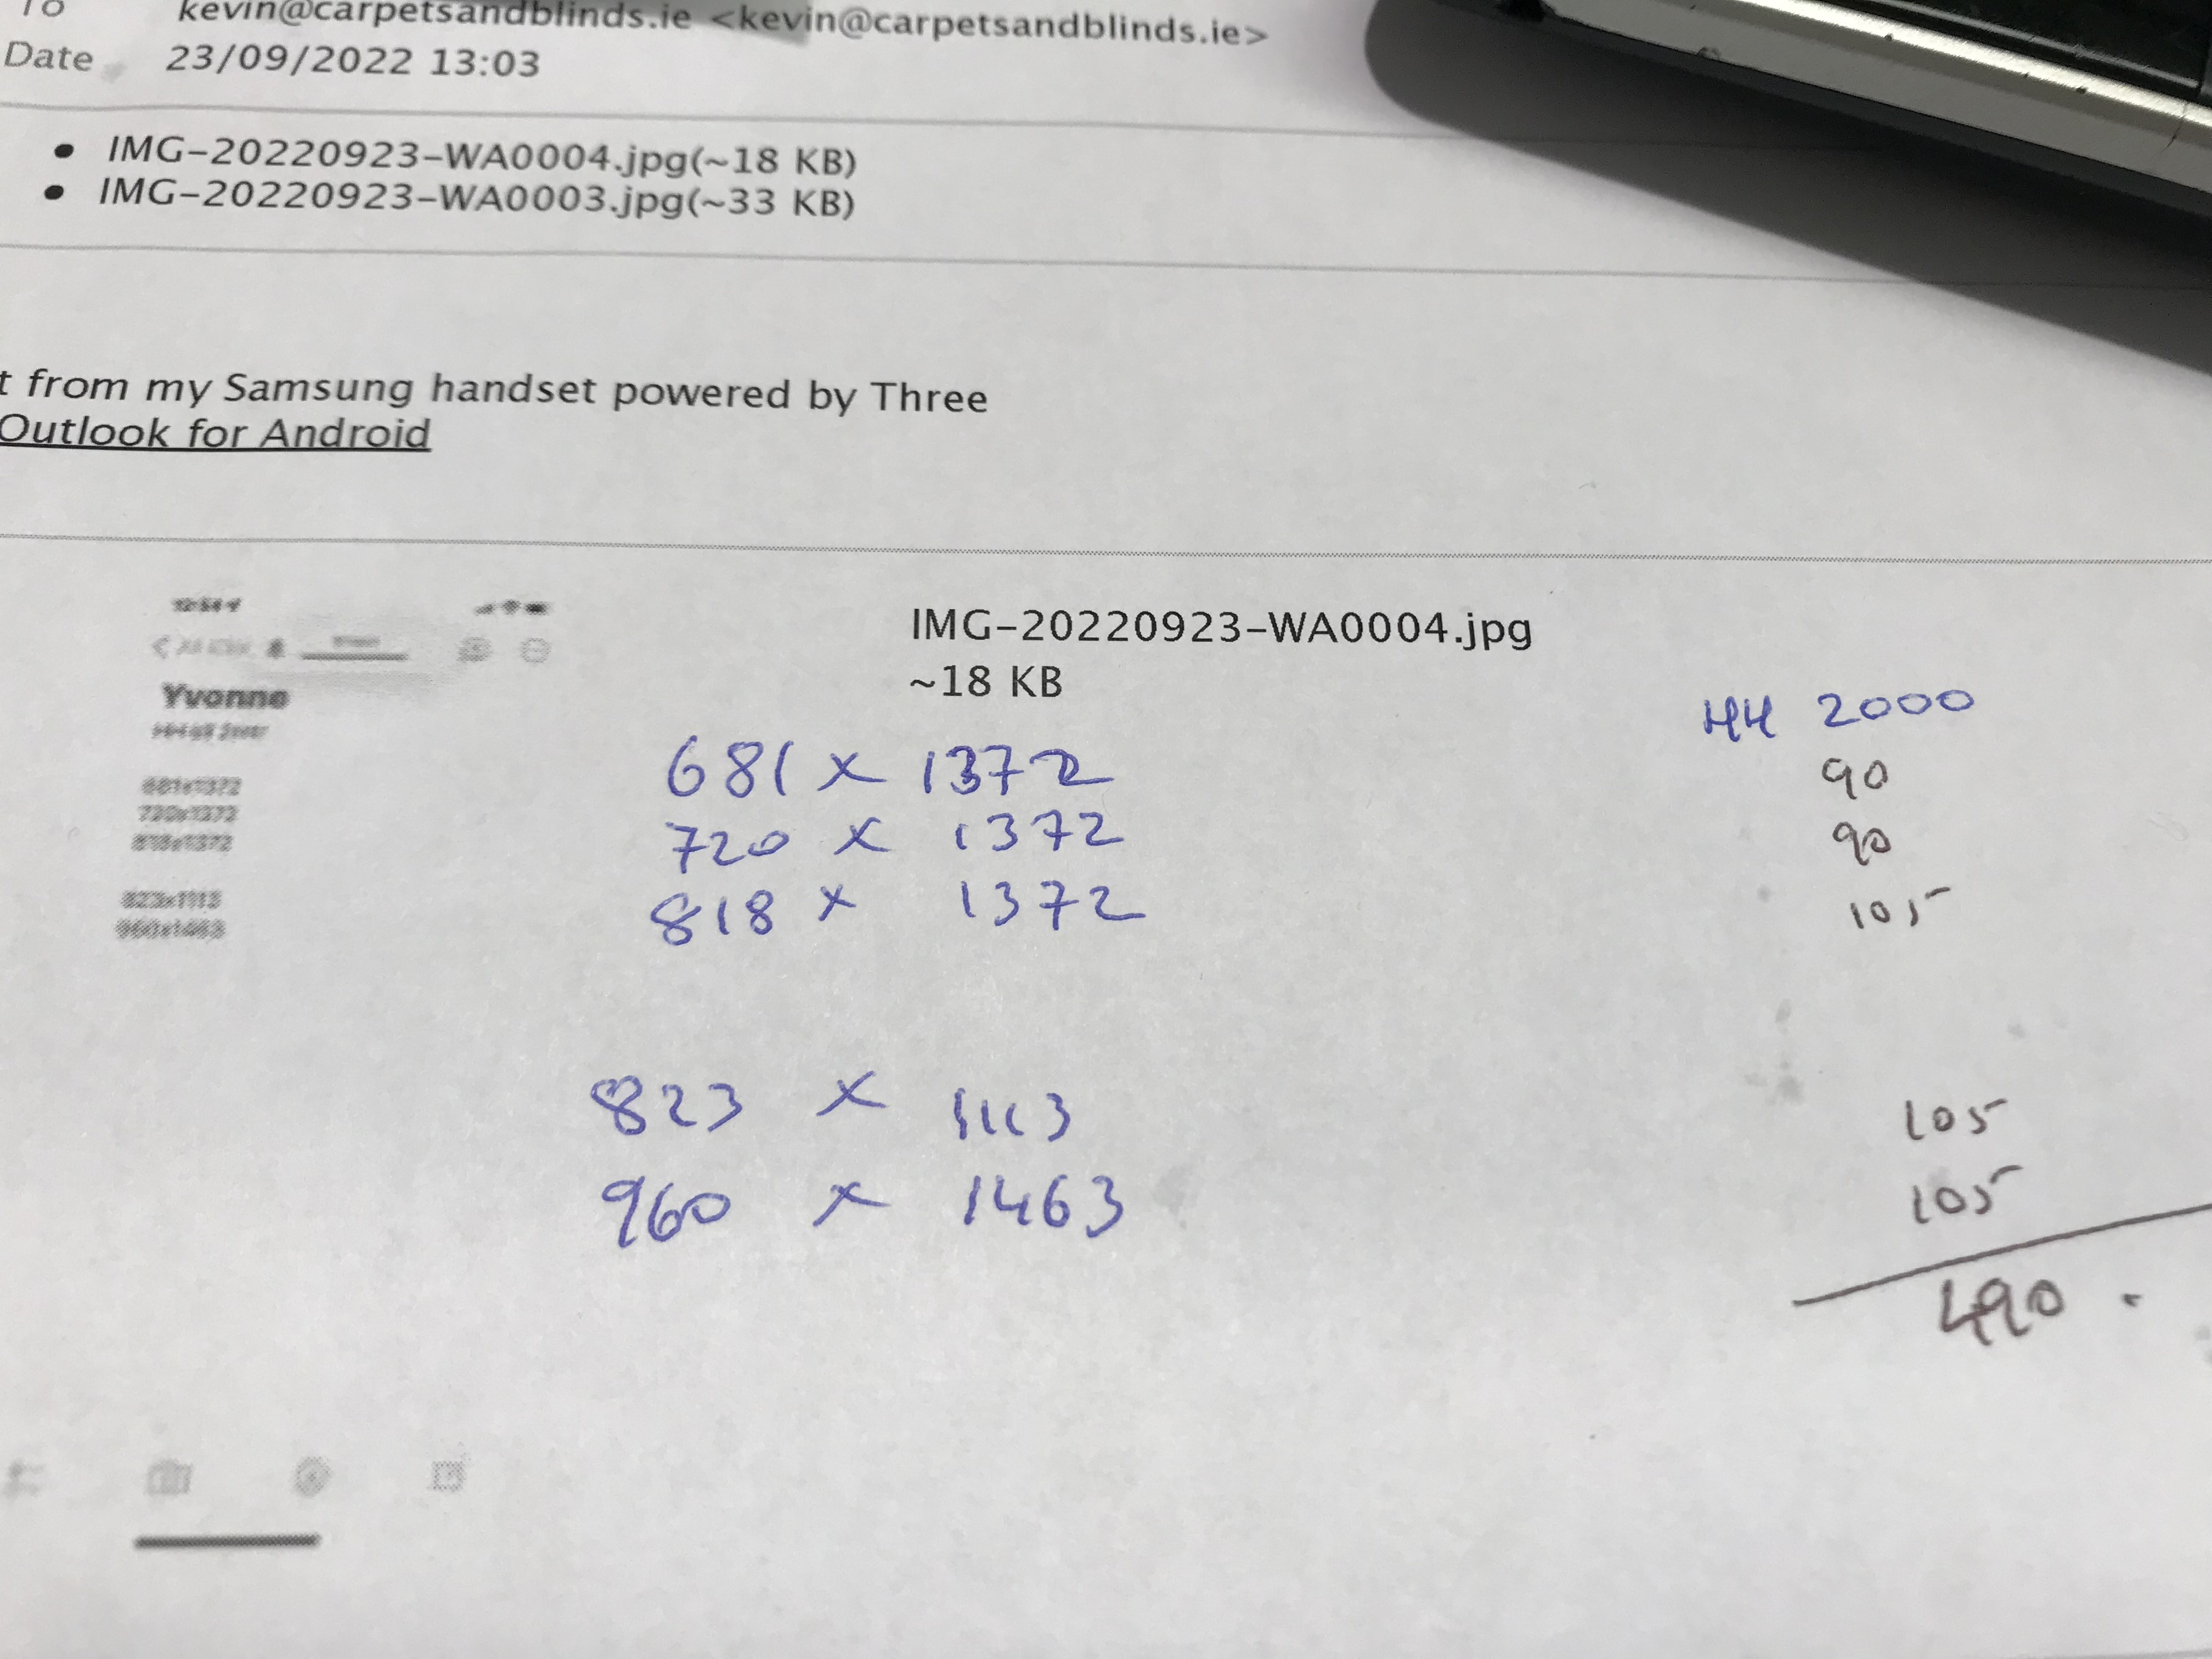 To kevin@carpetsandblinds.ie <kevin@carpetsandblinds.ie>
Date 23/09/2022 13:03
• IMG-20220923-WA0004.jpg(~18 KB)
• IMG-20220923-WA0003.jpg(~33 KB)
t from my Samsung handset powered by Three
Outlook for Android
IMG-20220923-WA0004.jpg
~18 KB
Yvonne
681x1372
720x1372
818x1372
823x1113
960x1463
HH 2000
681 x 1372 90
720 x 1372 90
818 x 1372 105
823 x 1113 105
960 x 1463 105
490.